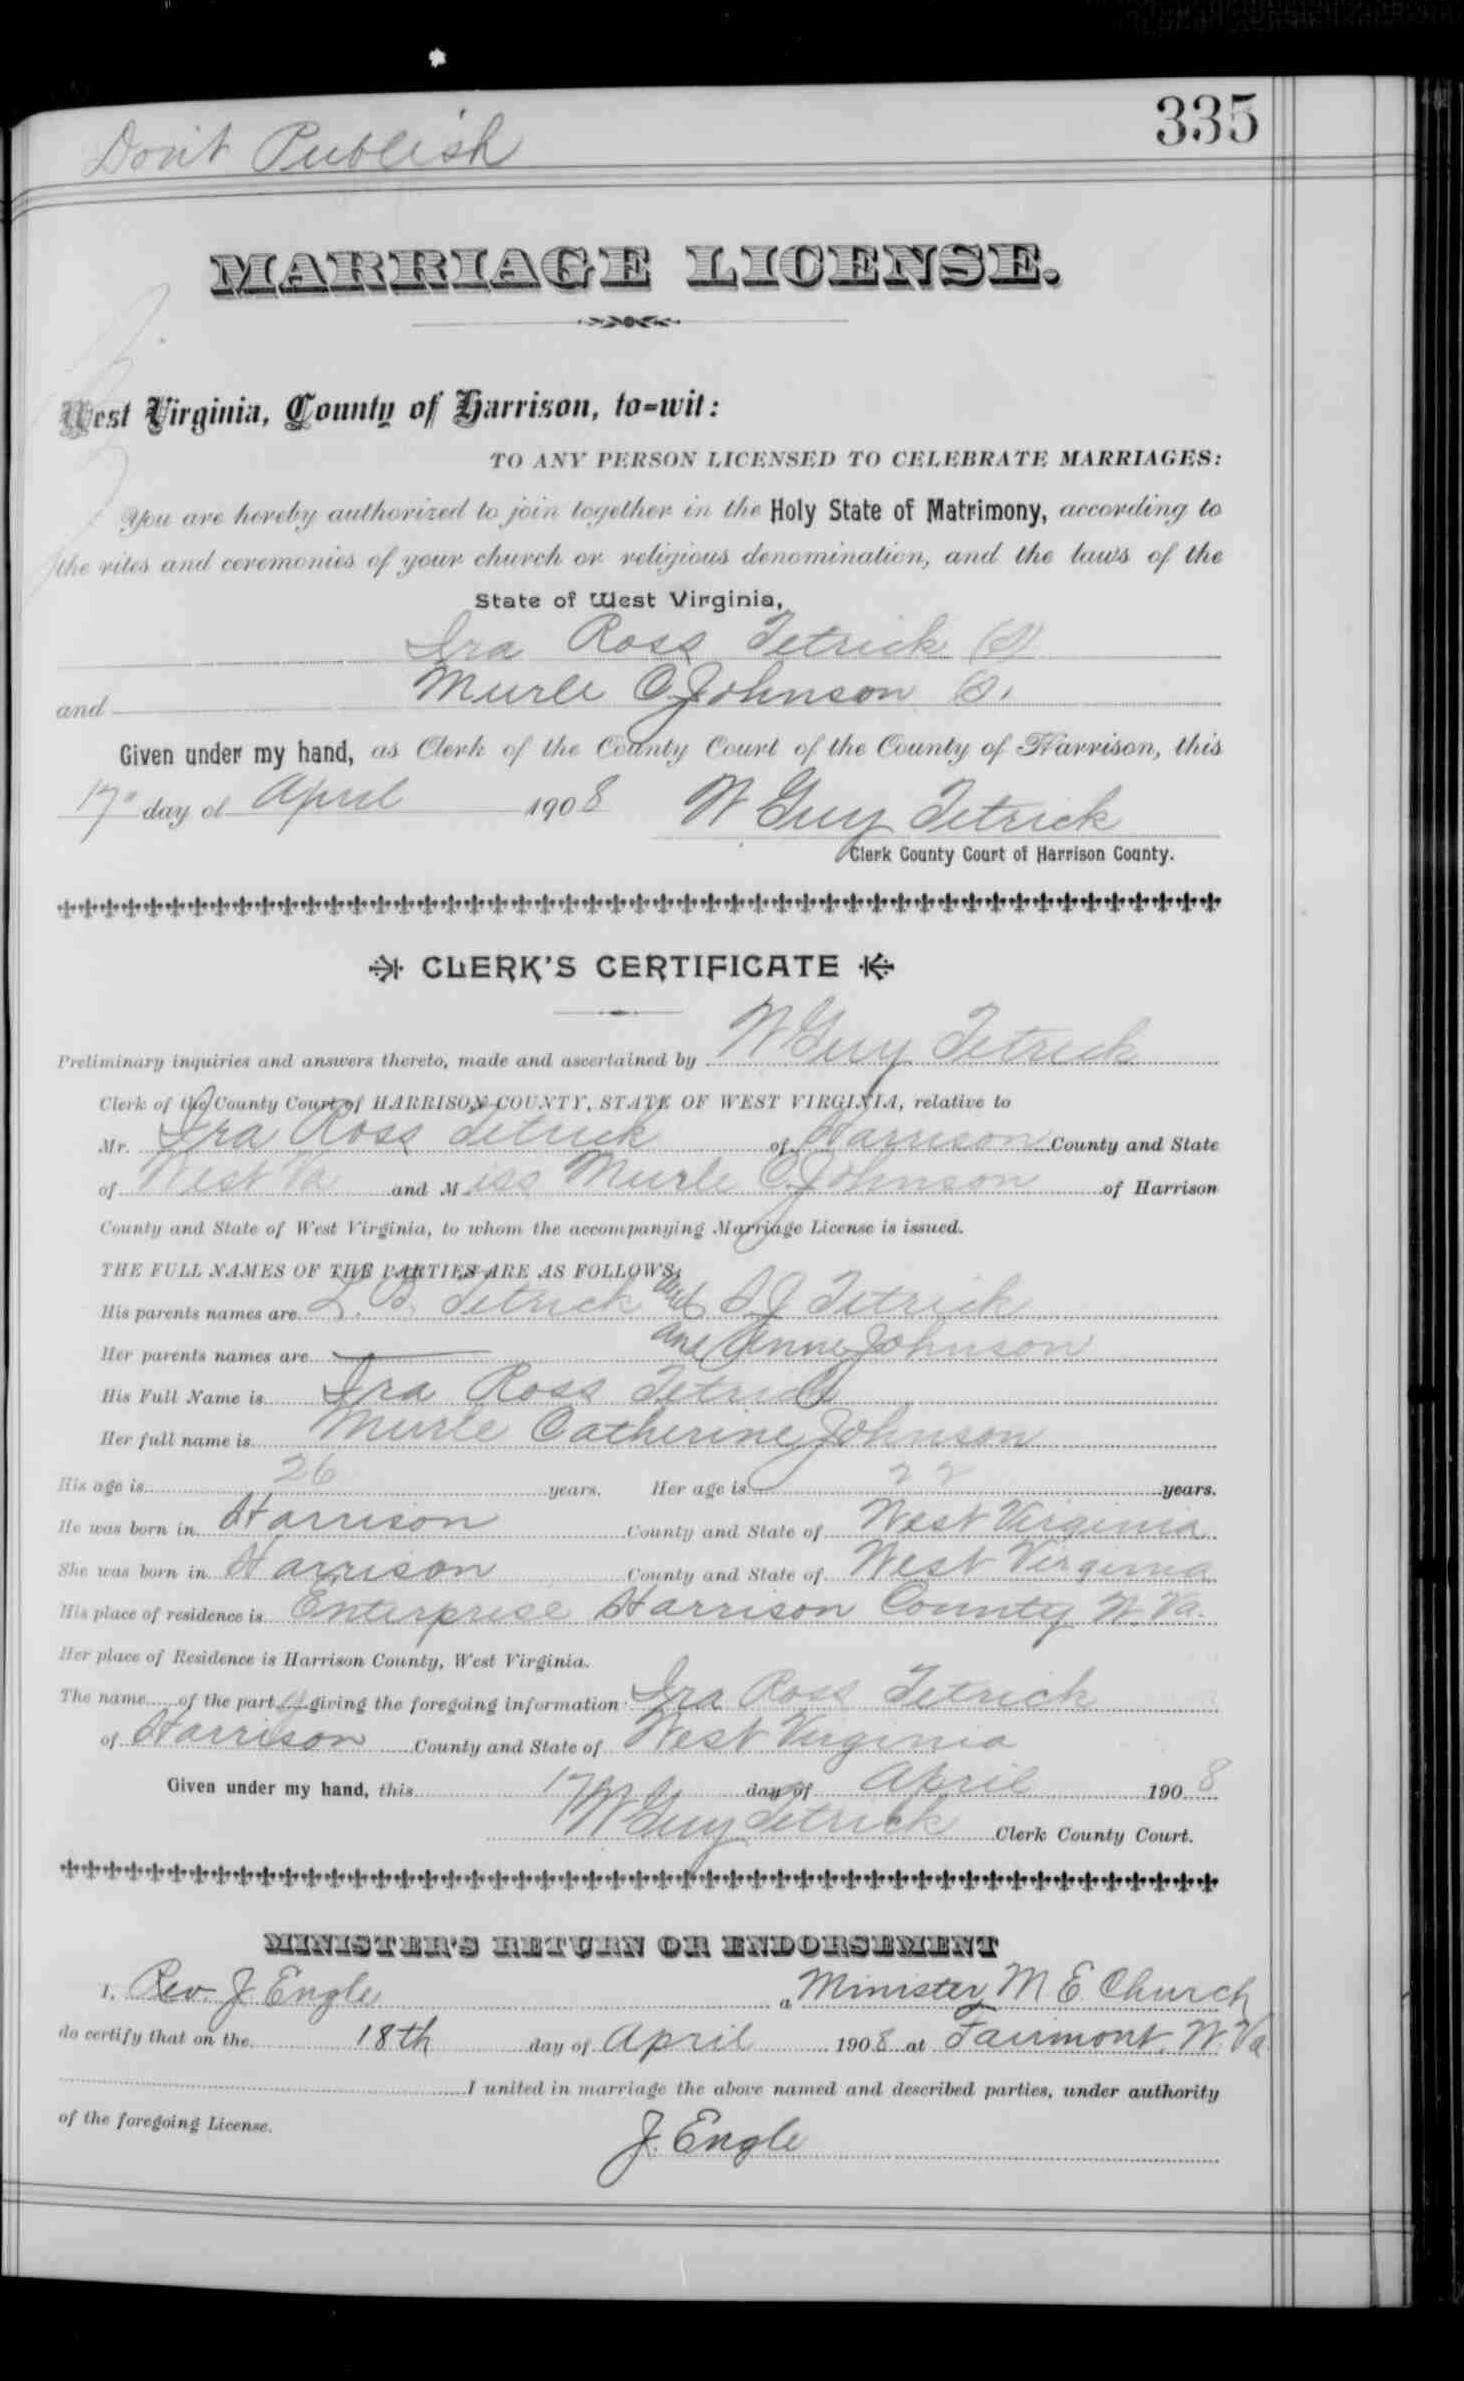 335
Don't Publish
MARRIAGE LICENSE.
West Virginia, County of Harrison, to-wit:
TO ANY PERSON LICENSED TO CELEBRATE MARRIAGES:
You are hereby authorized to join together in the Holy State of Matrimony, according to
the rites and ceremonies of your church or religious denomination, and the laws of the
State of West Virginia,
Ira Ross Tetrick (S)
and Murle C Johnson (S.
Given under my hand, as Clerk of the County Court of the County of Harrison, this
17" day of April 1908 W Guy Tetrick
Clerk County Court of Harrison County.
CLERK'S CERTIFICATE
Preliminary inquiries and answers thereto, made and ascertained by W Guy Tetrick
Clerk of the County Court of HARRISON COUNTY, STATE OF WEST VIRGINIA, relative to
Mr. Ira Ross Tetrick of Harrison County and State
of West Va and Miss Murle C Johnson of Harrison
County and State of West Virginia, to whom the accompanying Marriage License is issued.
THE FULL NAMES OF THE PARTIES ARE AS FOLLOWS:
His parents names are L. B. Tetrick and S J Tetrick
Her parents names are and Anne Johnson
His Full Name is Ira Ross Tetrick
Her full name is Murle Catherine Johnson
His age is 26 years. Her age is 22 years.
He was born in Harrison County and State of West Virginia
She was born in Harrison County and State of West Virginia
His place of residence is Enterprise Harrison County W. Va.
Her place of Residence is Harrison County, West Virginia.
The name of the party giving the foregoing information Ira Ross Tetrick
of Harrison County and State of West Virginia
Given under my hand, this 17 day of April 1908
W Guy Tetrick Clerk County Court.
MINISTER'S RETURN OR ENDORSEMENT
I, Rev. J. Engle a Minister M E Church
do certify that on the 18th day of April 1908 at Fairmont, W. Va
I united in marriage the above named and described parties, under authority
of the foregoing License.
J. Engle